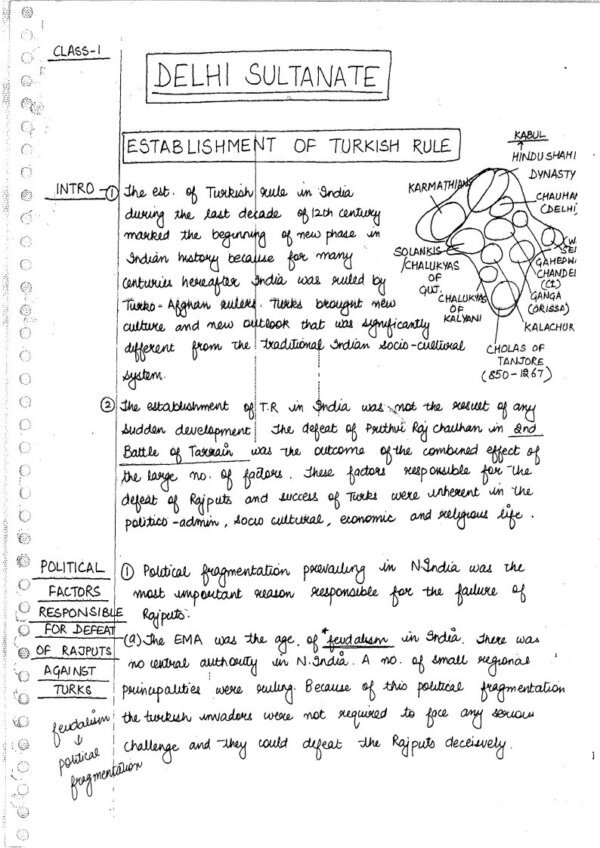 CLASS-1
DELHI SULTANATE
ESTABLISHMENT OF TURKISH RULE
INTRO - ① The est. of Turkish rule in India
during the last decade of 12th century
marked the beginning of new phase in
Indian history because for many
centuries hereafter India was ruled by
Turko-Afghan rulers. Turks brought new
culture and new outlook that was significantly
different from the traditional Indian socio-cultural
system.
KABUL
HINDU SHAHI
DYNASTY
KARMATHIANS
CHAUHA
(DELHI
SOLANKIS
/CHALUKYAS
OF
GUJ.
SE
GAHEDW
CHANDE
(CI)
GANGA
(ORISSA)
CHALUKYAS
OF
KALYANI
KALACHUR
CHOLAS OF
TANJORE
(850-1267)
② The establishment of T.R in India was not the result of any
sudden development. The defeat of Prithvi Raj Chauhan in 2nd
Battle of Tarrain was the outcome of the combined effect of
the large no. of factors. These factors responsible for the
defeat of Rajputs and success of Turks were inherent in the
politico-admin, socio cultural, economic and religious life.
POLITICAL
FACTORS
RESPONSIBLE
FOR DEFEAT
OF RAJPUTS
AGAINST
TURKS
① Political fragmentation prevailing in N.India was the
most important reason responsible for the failure of
Rajputs.
(a) The EMA was the age of *feudalism in India. There was
no central authority in N.India. A no. of small regional
principalities were ruling. Because of this political fragmentation
the turkish invadors were not required to face any serious
challenge and they could defeat the Rajputs deceisively.
feudalism
↓
political
fragmentation
1